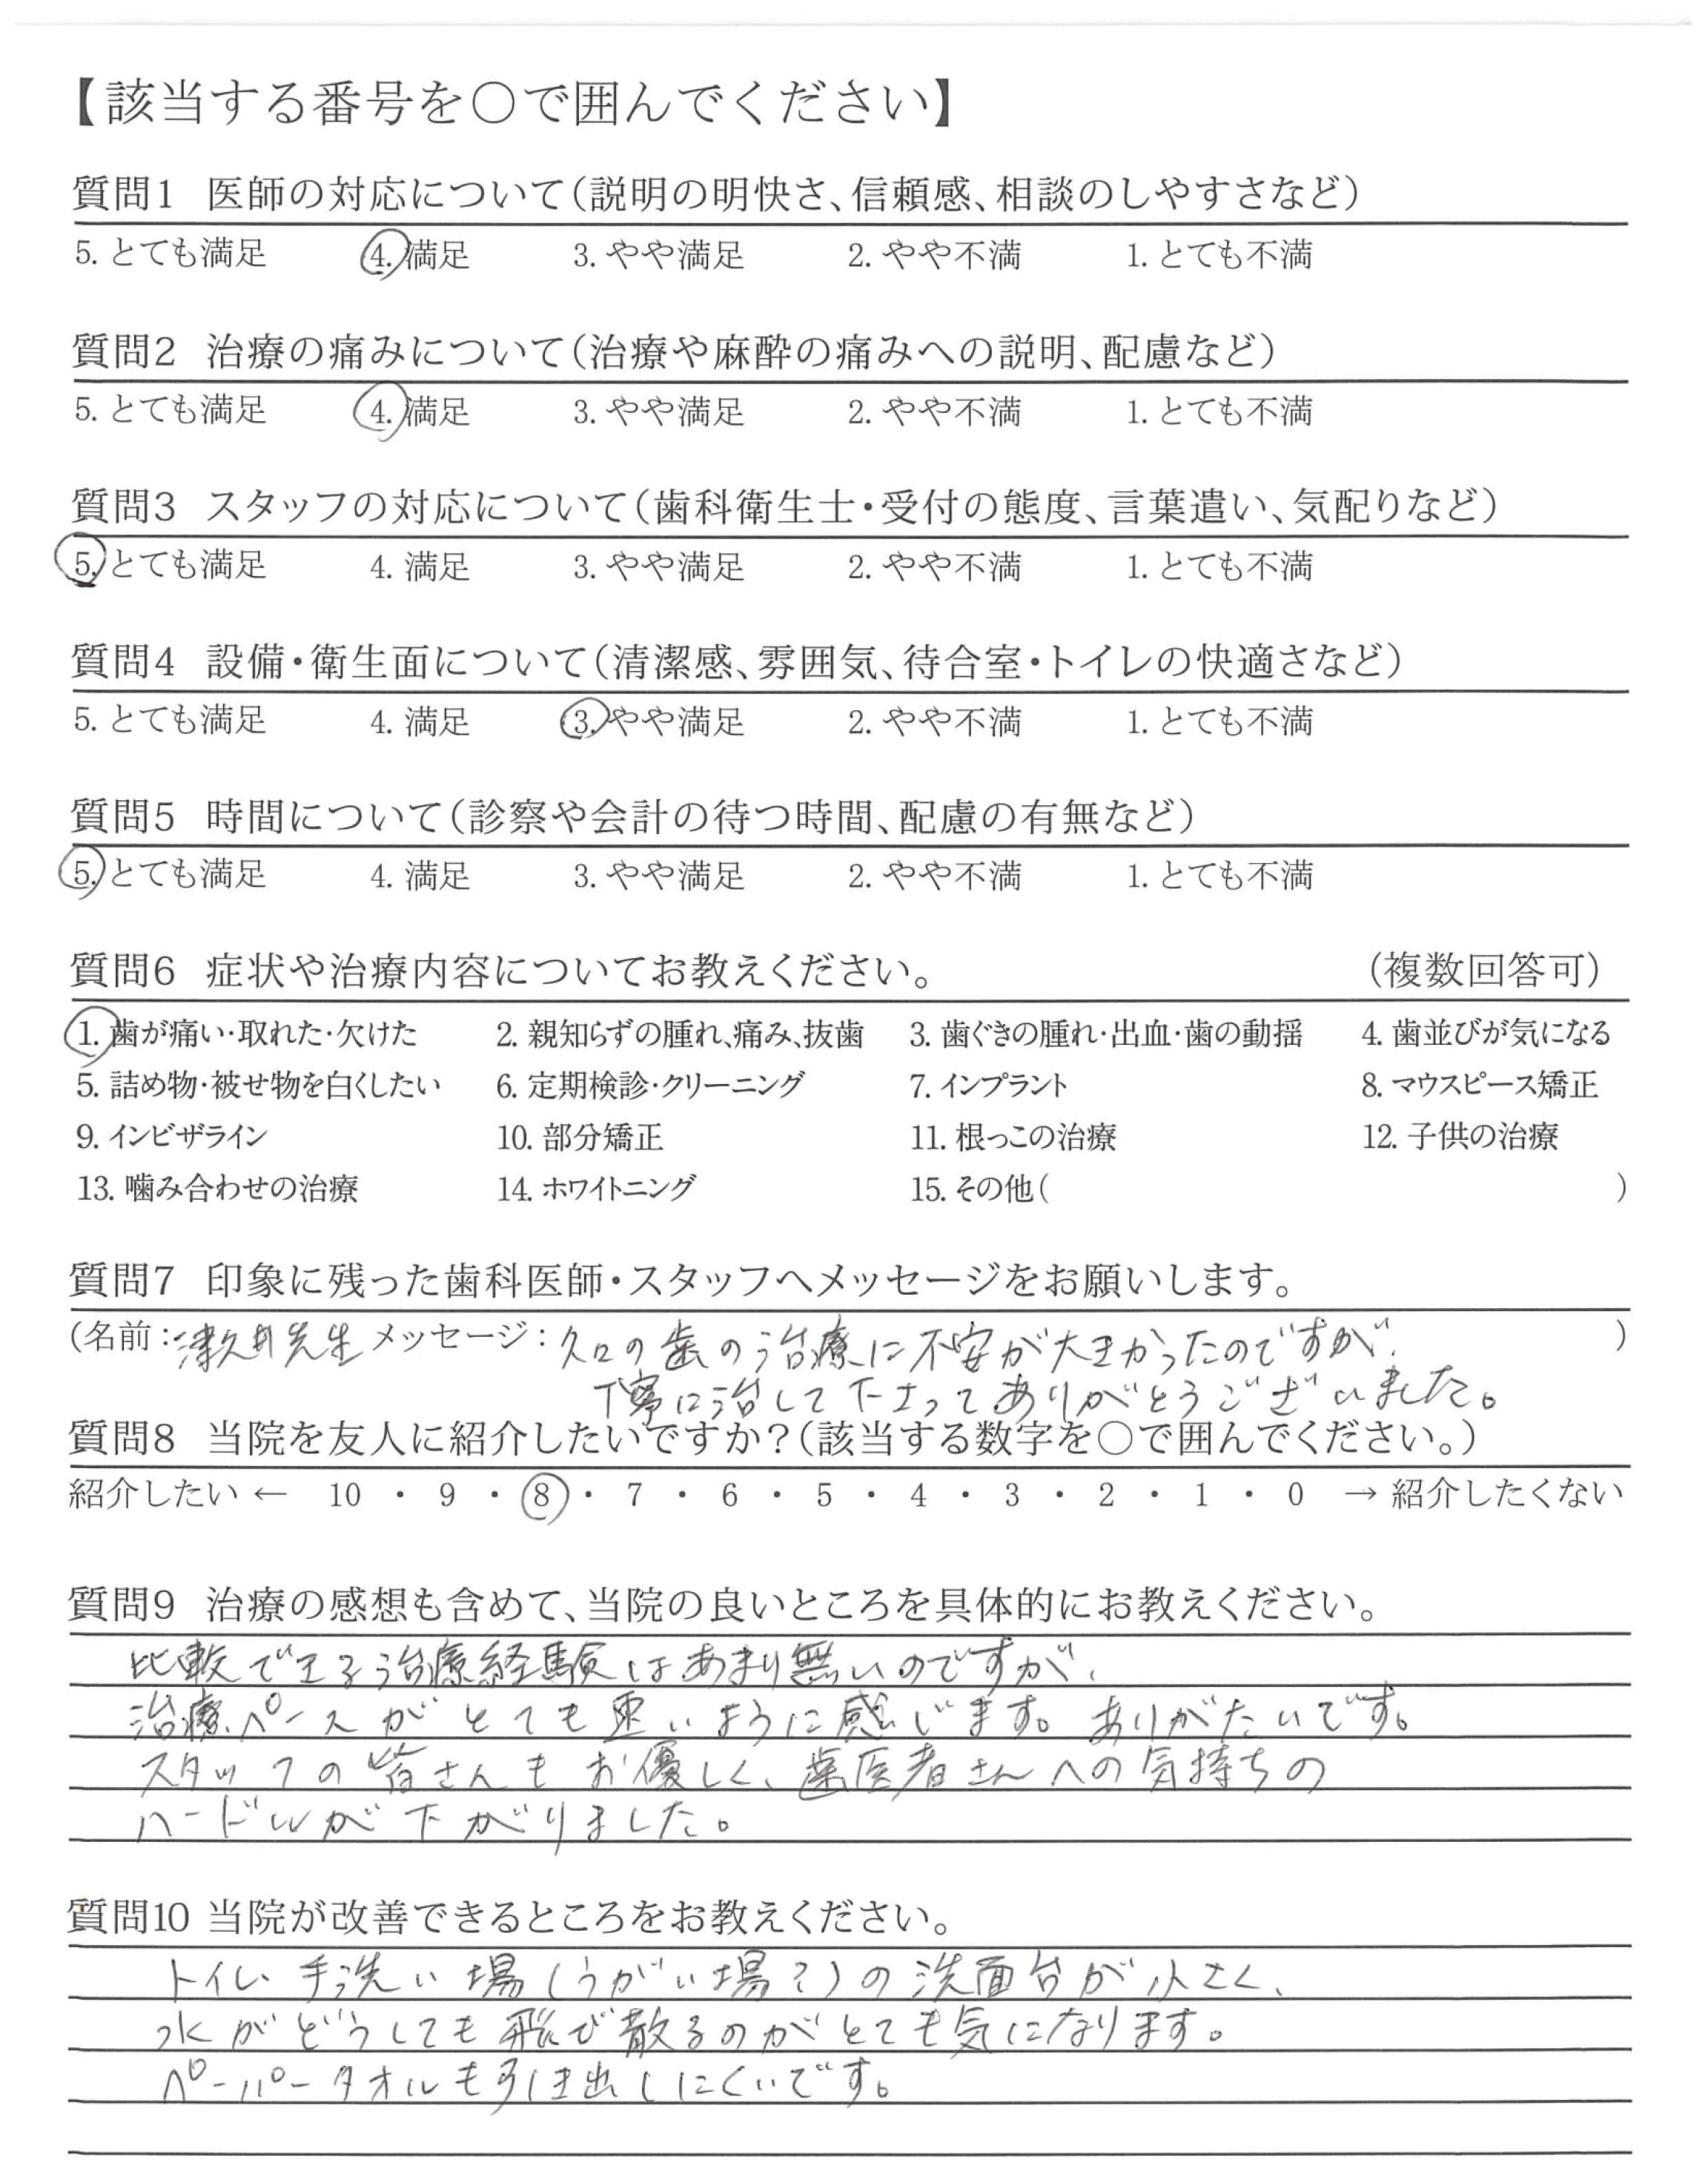 【該当する番号を○で囲んでください】
質問1 医師の対応について(説明の明快さ、信頼感、相談のしやすさなど)
5. とても満足 4. 満足 3. やや満足 2. やや不満 1. とても不満
質問2 治療の痛みについて(治療や麻酔の痛みへの説明、配慮など)
5. とても満足 4. 満足 3. やや満足 2. やや不満 1. とても不満
質問3 スタッフの対応について(歯科衛生士・受付の態度、言葉遣い、気配りなど)
5. とても満足 4. 満足 3. やや満足 2. やや不満 1. とても不満
質問4 設備・衛生面について(清潔感、雰囲気、待合室・トイレの快適さなど)
5. とても満足 4. 満足 3. やや満足 2. やや不満 1. とても不満
質問5 時間について(診察や会計の待つ時間、配慮の有無など)
5. とても満足 4. 満足 3. やや満足 2. やや不満 1. とても不満
質問6 症状や治療内容についてお教えください。 (複数回答可)
1. 歯が痛い・取れた・欠けた 2. 親知らずの腫れ、痛み、抜歯 3. 歯ぐきの腫れ・出血・歯の動揺 4. 歯並びが気になる
5. 詰め物・被せ物を白くしたい 6. 定期検診・クリーニング 7. インプラント 8. マウスピース矯正
9. インビザライン 10. 部分矯正 11. 根っこの治療 12. 子供の治療
13. 噛み合わせの治療 14. ホワイトニング 15. その他( )
質問7 印象に残った歯科医師・スタッフへメッセージをお願いします。
(名前:津久井先生 メッセージ: 久々の歯の治療に不安が大きかったのですが、 )
丁寧に治して下さってありがとうございました。
質問8 当院を友人に紹介したいですか?(該当する数字を○で囲んでください。)
紹介したい ← 10 ・ 9 ・ 8 ・ 7 ・ 6 ・ 5 ・ 4 ・ 3 ・ 2 ・ 1 ・ 0 → 紹介したくない
質問9 治療の感想も含めて、当院の良いところを具体的にお教えください。
比較できる治療経験はあまり無いのですが、
治療ペースがとても速いように感じます。ありがたいです。
スタッフの皆さんもお優しく、歯医者さんへの気持ちの
ハードルが下がりました。
質問10 当院が改善できるところをお教えください。
トイレ、手洗い場(うがい場?)の洗面台が小さく、
水がどうしても飛び散るのがとても気になります。
ペーパータオルも引き出しにくいです。